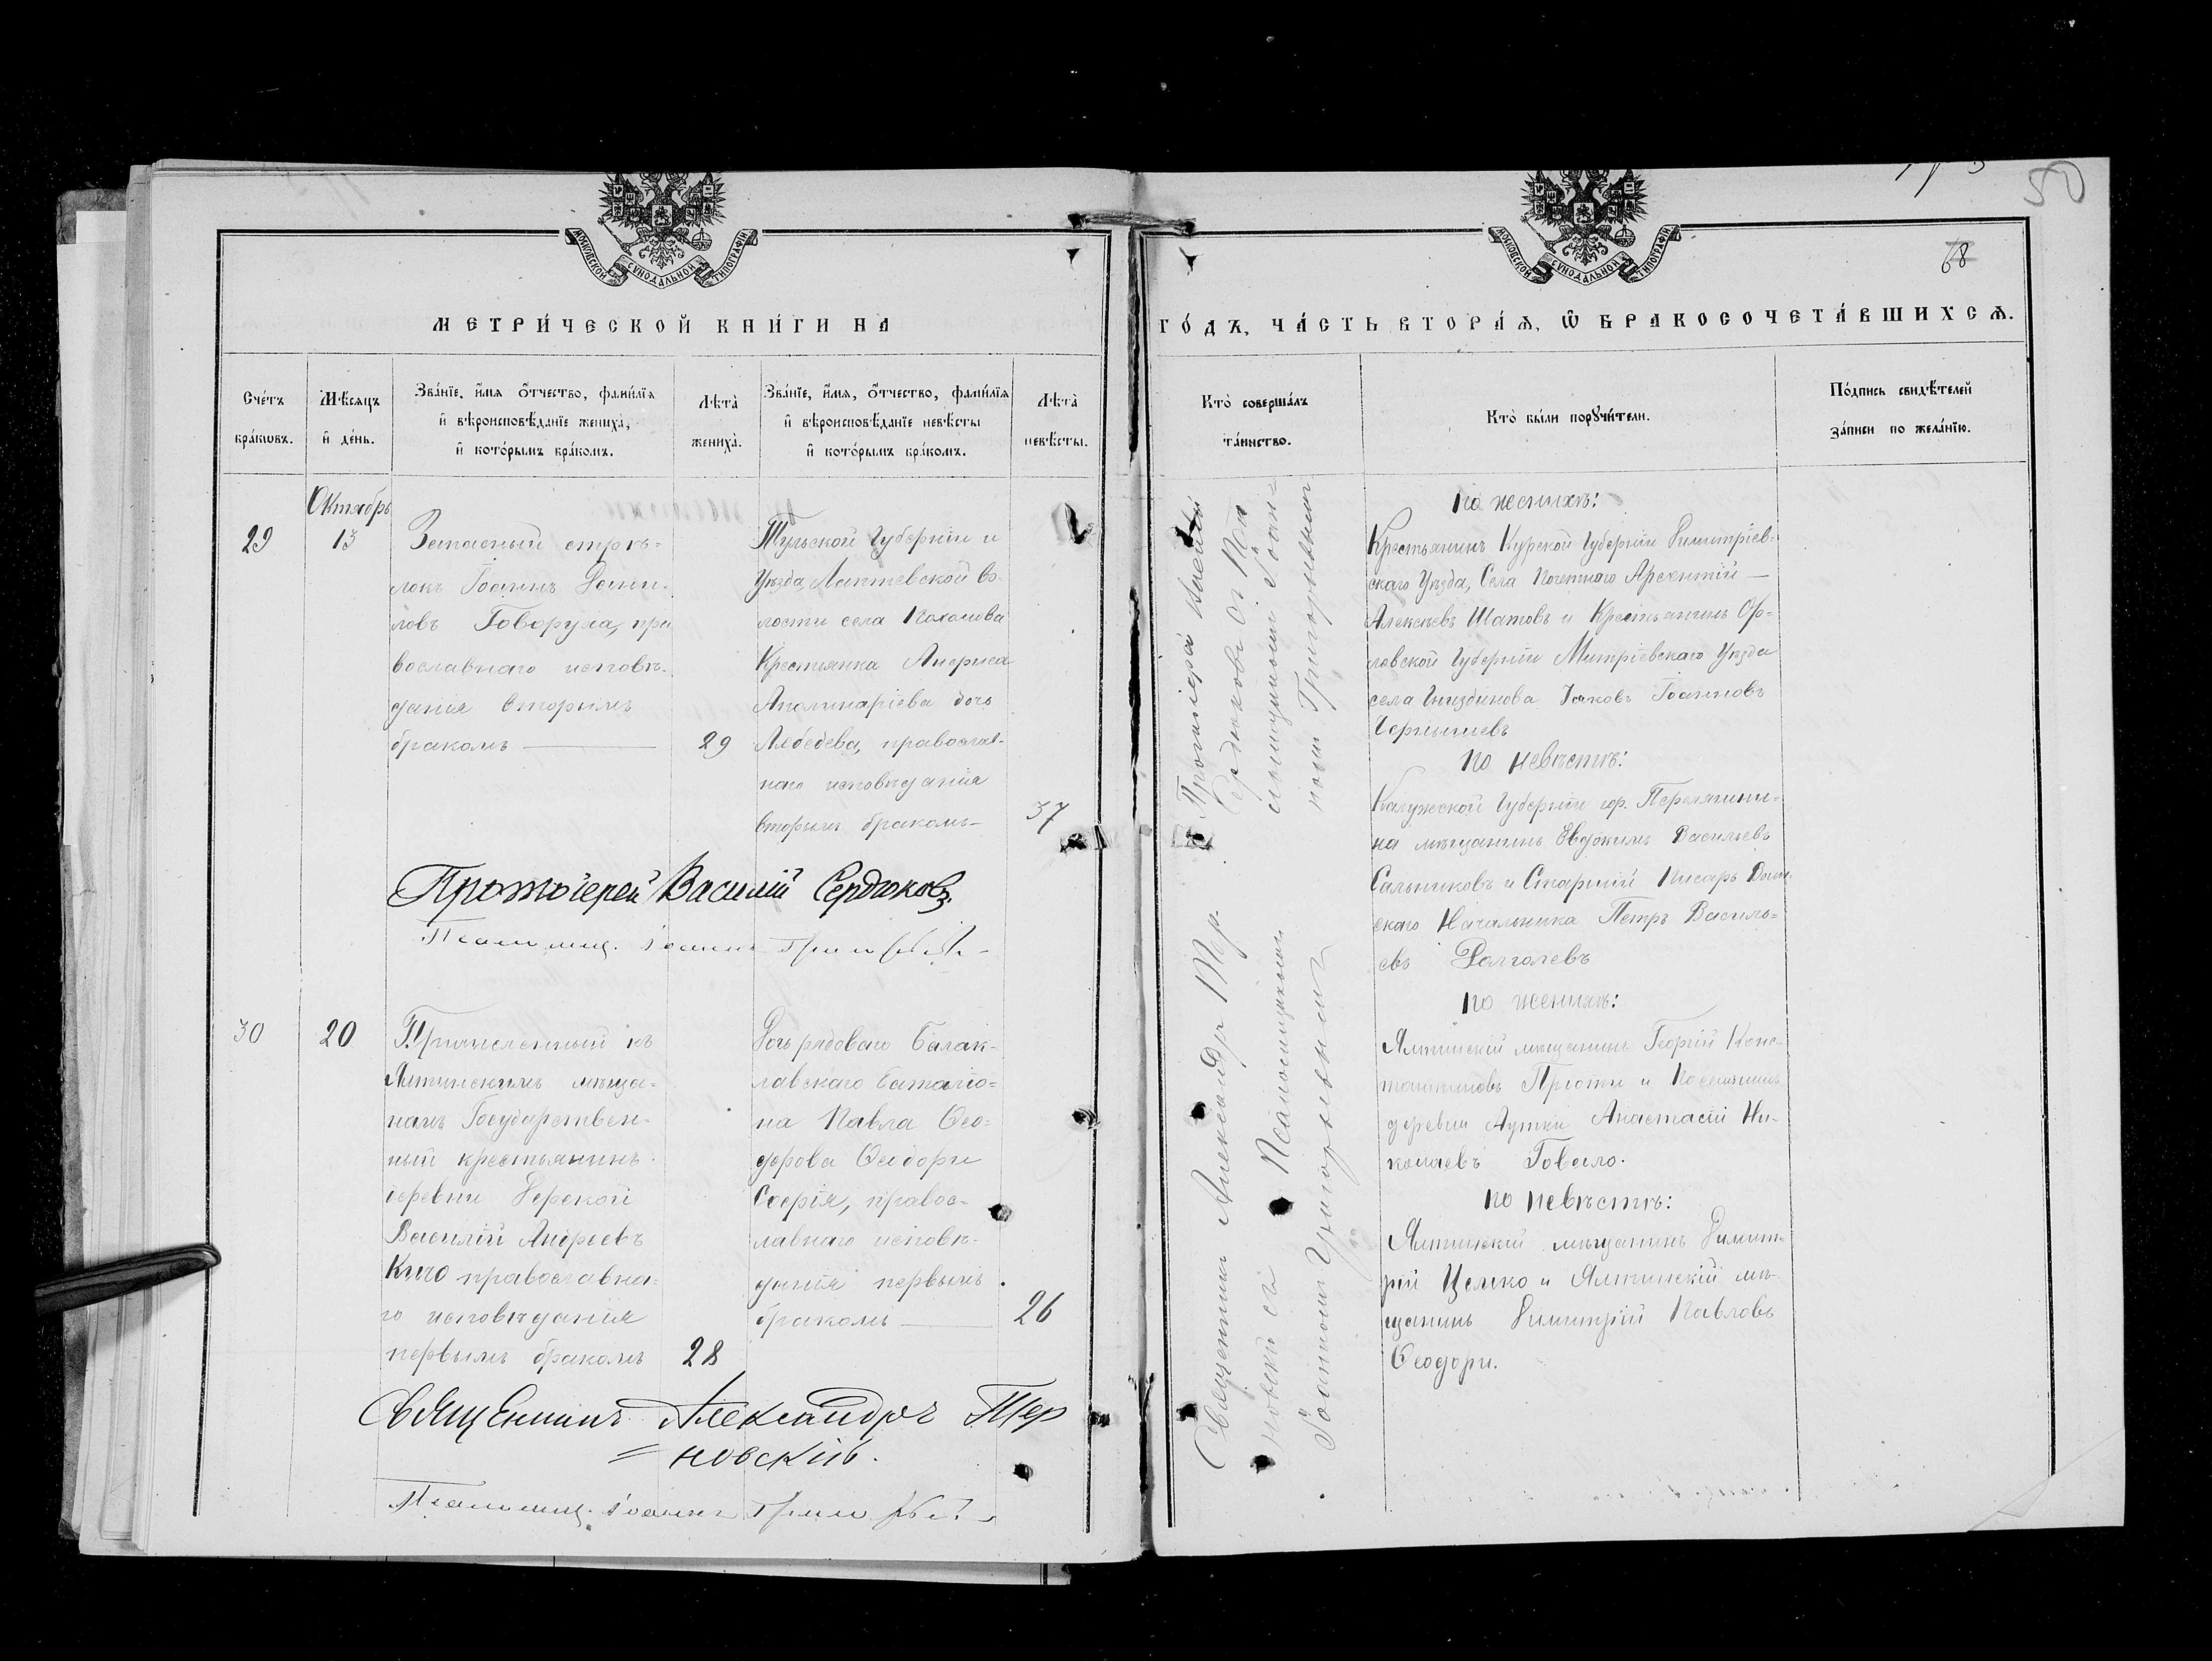 50
68
МОСКОВСКОЙ СѴНОДАЛЬНОЙ ТИПОГРАФІИ
МОСКОВСКОЙ СѴНОДАЛЬНОЙ ТИПОГРАФІИ
МЕТРИ́ЧЕСКОЙ КНИ́ГИ НА
ГО́ДЪ, ЧА́СТЬ ВТОРА́Ѧ, Ѽ БРАКОСОЧЕТА́ВШИХСѦ.
Сче́тъ
бра́кωвъ.
Мѣ́сяцъ
и҆ де́нь.
Зва́нїе, и҆́мя ѻ҆́тчество, фами́лїя
и҆ вѣроисповѣ́данїе жениха̀,
и҆ кото́рымъ бра́комъ.
Лѣта̀
жениха̀.
Зва́нїе, и҆́мя, ѻ҆́тчество, фами́лїя
и҆ вѣроисповѣ́данїе невѣ́сты
и҆ кото́рымъ бра́комъ.
Лѣта̀
невѣ́сты.
Кто̀ соверша́лъ
та́инство.
Кто̀ бы́ли порꙋчи́тели.
По́дпись свидѣ́телей
за́писи по жела́нїю.
Октябрь
29
13
Запасный стрѣ-
локъ Іоаннъ Дани-
ловъ Говоруха, пра
вославнаго исповѣ-
данія вторымъ
бракомъ
29
Тульской Губерніи и
Уѣзда, Лаптевской Во-
лости села
Крестьянка
Аполинаріева дочь
Лебедева, православ-
наго исповѣданія
вторымъ бракомъ
37
Протоіерей Василій
Сердюковъ съ Пса
ломщикомъ Іоан-
номъ
По женихѣ:
Крестьянинъ Курской Губерніи Димитріев-
скаго Уѣзда, Села Арсентій
Алексѣевъ Шатовъ и Крестьянинъ Ор-
ловской Губерніи Митріевскаго Уѣзда
села Гнѣздилова Іаковъ Іоанновъ
Чернышевъ
По невѣстѣ:
Калужской Губерніи гор.
на мѣщанинъ Евдокимъ Васильевъ
Сальниковъ и Старшій Писарь
скаго Начальника Петръ Василь-
евъ
Протоіерей Василій Сердюковъ.
Псаломщ. Іоаннъ
30
20
Причисленный къ
Ялтинскимъ мѣща-
намъ Государствен-
ный крестьянинъ
деревни Дерской
Василій Андреевъ
православна-
го исповѣданія
первымъ бракомъ
28
Дочь рядоваго Балак-
лавскаго баталіо-
на Павла Ѳео-
дорова Ѳеодори
Софія, правос-
лавнаго исповѣ-
данія первымъ
бракомъ
26
Священникъ Александръ Тер-
новскій съ Псаломщикомъ
Іоанномъ
По женихѣ:
Ялтинскій мѣщанинъ Георгій Конс-
тантиновъ и Поселянинъ
деревни Аутки Анастасій Ни-
колаевъ
По невѣстѣ:
Ялтинскій мѣщанинъ Димит-
рій и Ялтинскій мѣ-
щанинъ Димитрій Павловъ
Ѳеодори.
Священникъ Александръ Тер
=новскій.
Псаломщ. Іоаннъ